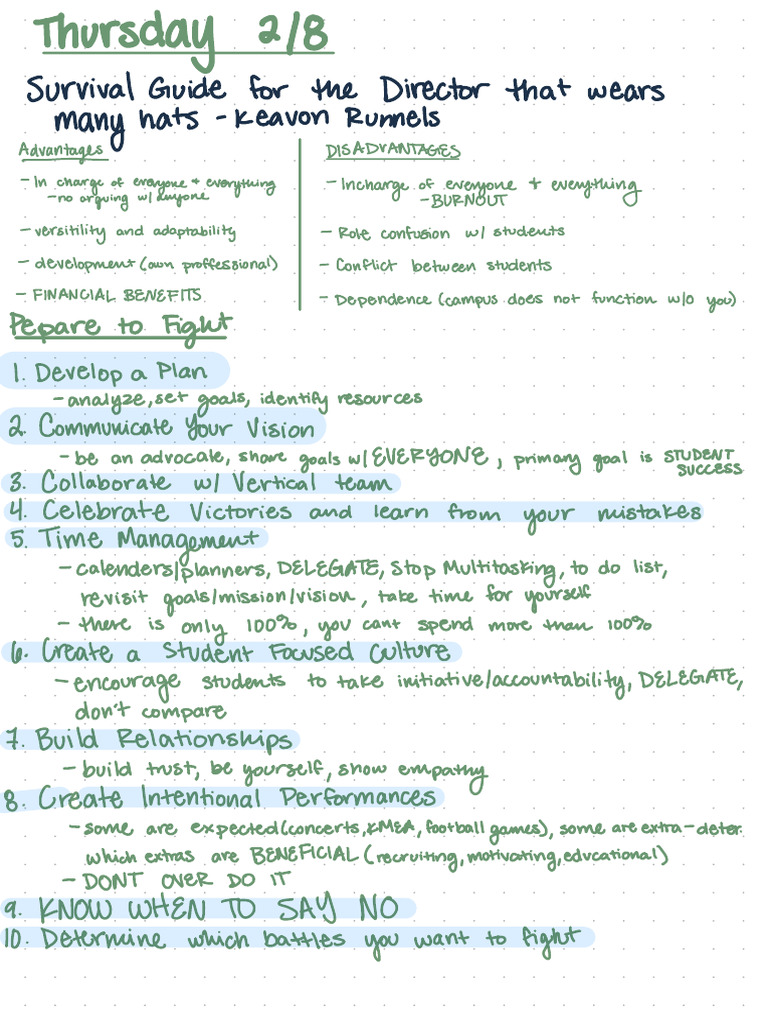 Thursday 2/8
Survival Guide for the Director that wears
many hats - Keavon Runnels
Advantages
- In charge of everyone + everything
- no arguing w/ anyone
- versitility and adaptability
- development (own proffessional)
- FINANCIAL BENEFITS
DISADVANTAGES
- Incharge of everyone + everything
- BURNOUT
- Role confusion w/ students
- Conflict between students
- Dependence (campus does not function w/o you)
Pepare to Fight
1. Develop a Plan
- analyze, set goals, identify resources
2. Communicate Your Vision
- be an advocate, share goals w/ EVERYONE, primary goal is STUDENT
SUCCESS
3. Collaborate w/ Vertical team
4. Celebrate Victories and learn from your mistakes
5. Time Management
- calenders/planners, DELEGATE, Stop Multitasking, to do list,
revisit goals/mission/vision, take time for yourself
- there is only 100%, you cant spend more than 100%
6. Create a Student Focused Culture
- encourage students to take initiative/accountability, DELEGATE,
don't compare
7. Build Relationships
- build trust, be yourself, show empathy
8. Create Intentional Performances
- some are expected (concerts, KMEA, football games), some are extra - deter.
which extras are BENEFICIAL (recruiting, motivating, educational)
- DONT OVER DO IT
9. KNOW WHEN TO SAY NO
10. Determine which battles you want to fight